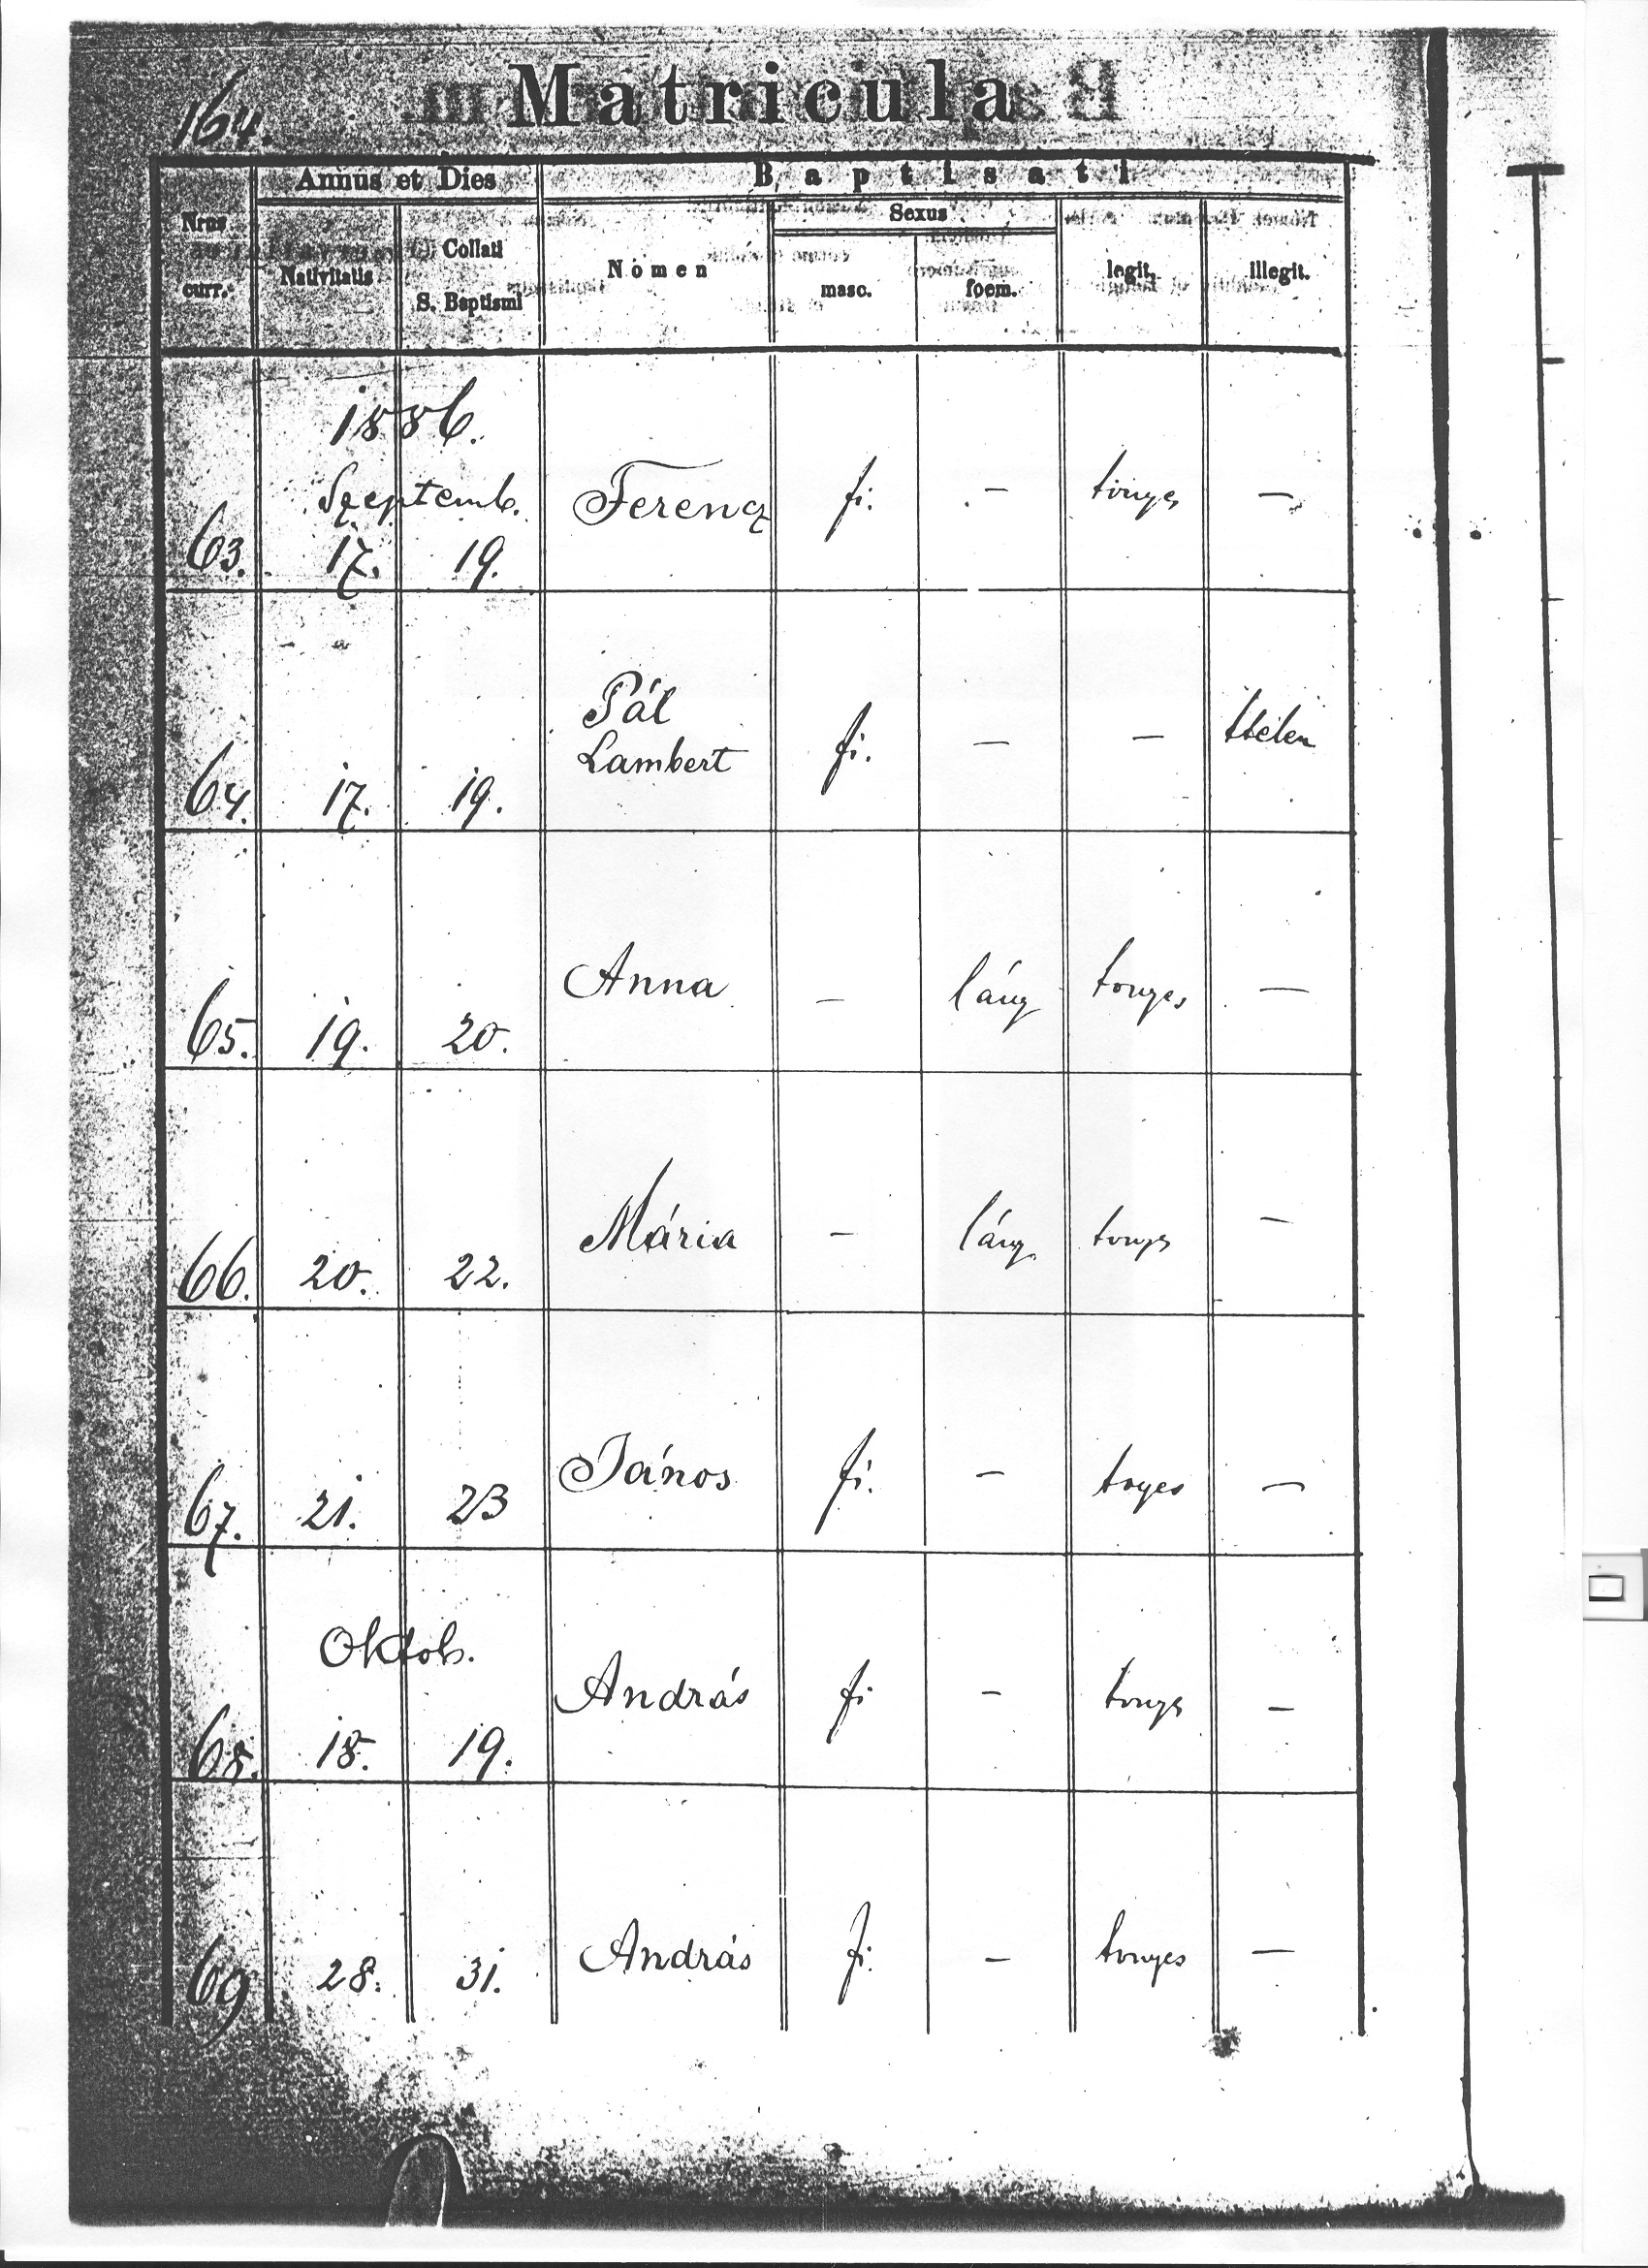 164.
Matricula
Annus et Dies
Baptisati
Nrus curr.
Nativitatis
Collati S. Baptismi
Nomen
Sexus
masc.
foem.
legit.
illegit.
1886.
Szeptemb.
63. 17. 19. Ferencz fi. — —
Pál
64. 17. 19. Lambert fi. — — ttelen
65. 19. 20. Anna — lány —
66. 20. 22. Mária — lány —
67. 21. 23 János fi. — —
Oktob.
68. 18. 19. András fi — —
69 28. 31. András fi. — —